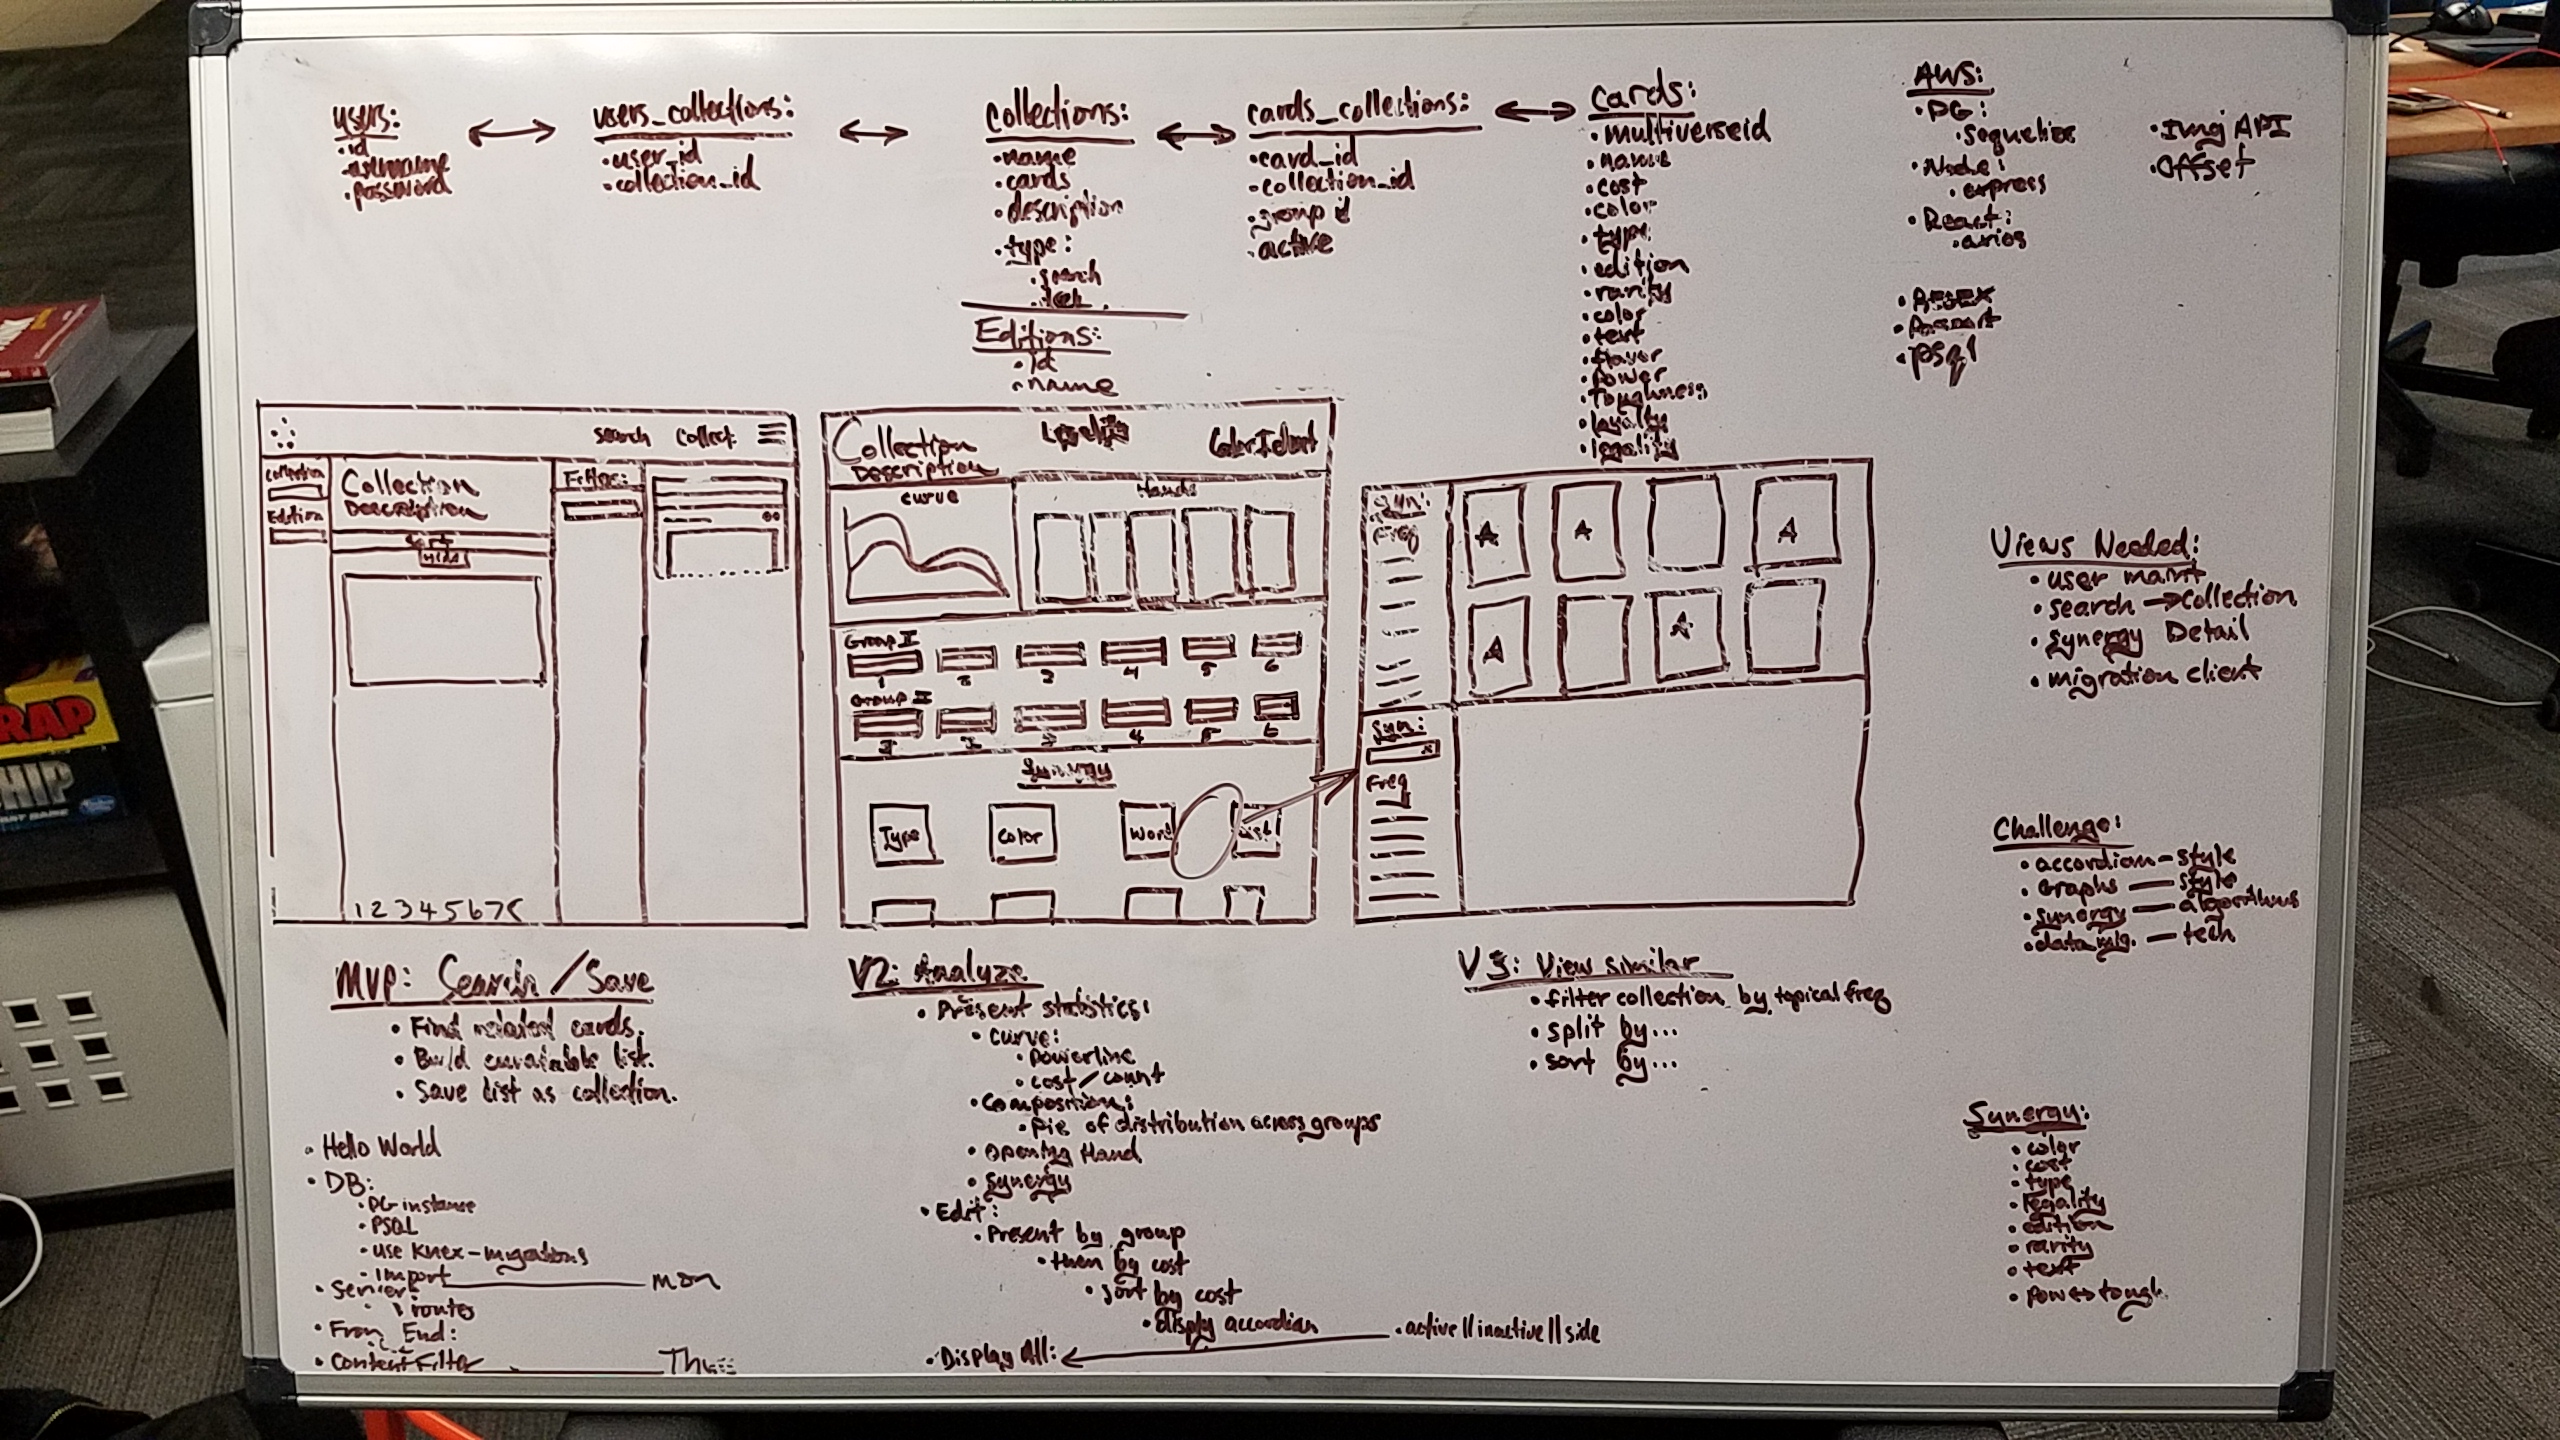 users:
• id
• username
• password
users_collections:
• user_id
• collection_id
collections:
• name
• cards
• description
• type:
• search
Editions:
• id
• name
cards_collections:
• card_id
• collection_id
• group id
• active
cards:
• multiverseid
• name
• cost
• color
• type
• edition
• rarity
• color
• text
• flavor
• power
• toughness
• loyalty
• legality
AWS:
• PG:
• sequelize
• Node:
• express
• React:
• axios
• Passport
• psql
• Img API
• Offset
search collect.
Collection
Edition
Collection
Description
Filter:
1 2 3 4 5 6 7 8
Collection
Description
Color Ident
curve
Hands
Group I
1 2 3 4 5 6
Group II
3 4 5 6
Synergy
Type Color Word List
Syn:
Freq
A A A
A A
Syn:
x
Freq
Views Needed:
• user maint
• search → collection
• synergy Detail
• migration client
Challenge:
• accordian - style
• Graphs — style
• synergy — algorithms
• data mig. — tech
MVP: Search/Save
• Find related cards.
• Build curatable list.
• Save list as collection.
• Hello World
• DB:
• PG instance
• PSQL
• use Knex-migrations
• Import — mon
• Server:
• routes
• Fron End:
• Content Filter — Thu
V2: Analyze
• Present statistics:
• curve:
• powerline
• cost/count
• Composition:
• pie of distribution across groups
• Opening Hand
• synergy
• Edit:
• Present by group
• then by cost
• sort by cost
• display accordian
• active || inactive || side
• Display All:
V3: View similar
• filter collection by typical freq
• split by...
• sort by...
Synergy:
• color
• cost
• type
• legality
• edition
• rarity
• text
• pow ↔ tough